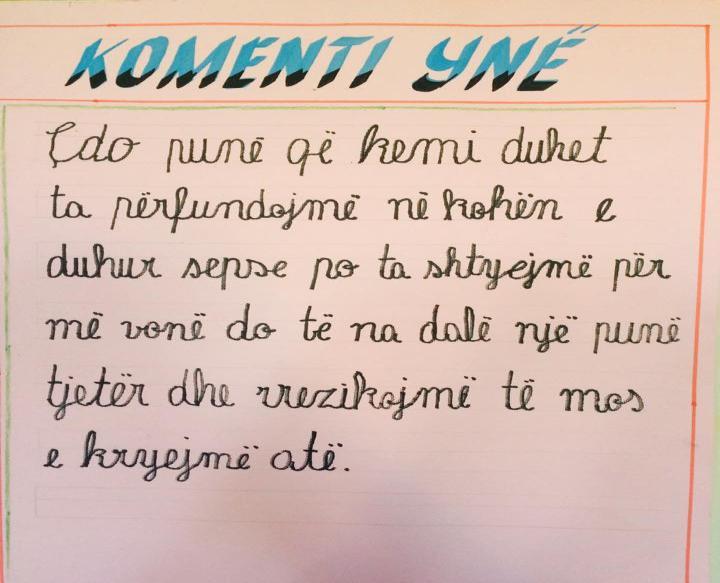 KOMENTI YNË
Çdo punë që kemi duhet
ta përfundojmë në kohën e
duhur sepse po ta shtyejmë për
më vonë do të na dalë një punë
tjetër dhe rrezikojmë të mos
e kryejmë atë.